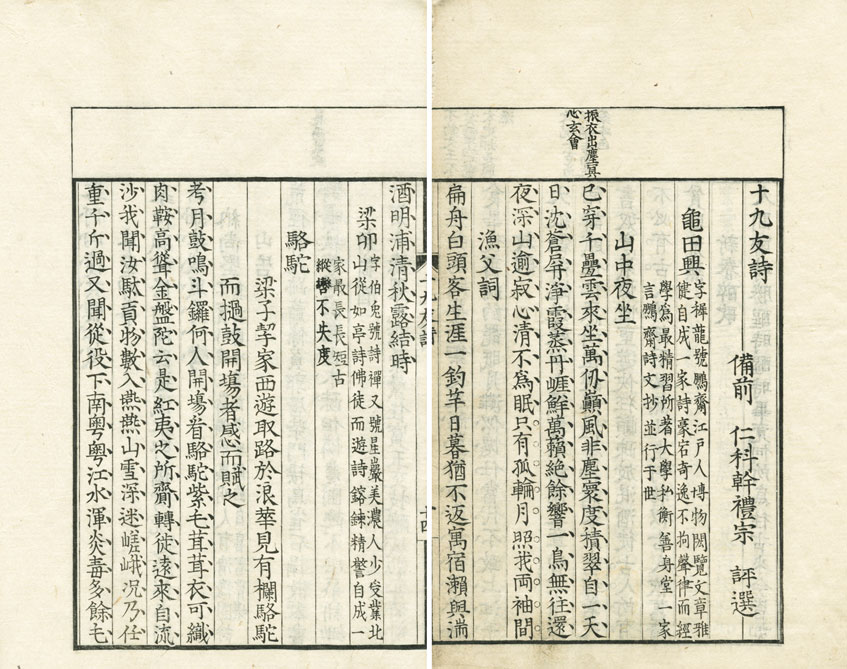 十九友詩
備前 仁科幹禮宗 評選
龜田興
字穉龍號鵬齋江戸人博物閎覽文章雅
健自成一家詩豪宕奇逸不拘聲律而經
學爲最精習所著大學私衡善身堂一家
言鵬齋詩文抄並行于世
振衣出塵冥
心玄會
山中夜坐
已穿千疊雲來坐萬仞巓風非塵寰度積翠自一天
日沈蒼屏淨霞蒸丹崕鮮萬籟絶餘響一鳥無往還
夜深山逾寂心清不爲眠只有孤輪月照我両袖間
漁父詞
扁舟白頭客生涯一釣竿日暮猶不返寓宿瀨與湍
酒明浦清秋露結時
十九友詩
十四
梁卯
字伯兎號詩禪又號星巖美濃人少受業北
山從如亭詩佛徒而遊詩鎔鍊精警自成一
家最長長短古
縱轡不失度
駱駝
梁子挈家西遊取路於浪華見有欄駱駝
而撾鼓開場者感而賦之
考月鼓鳴斗鑼何人開場看駱駝紫毛茸茸衣可織
肉鞍高聳金盤陀云是紅夷之所齎轉徙遠來自流
沙我聞汝馱貢物數入燕燕山雪深迷嵯峨况乃任
重千斤過又聞從役下南粤粤江水渾炎毒多餘毛